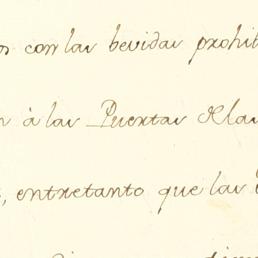 con las bevidas prohi
à las Puertas Cla
, entretanto que las